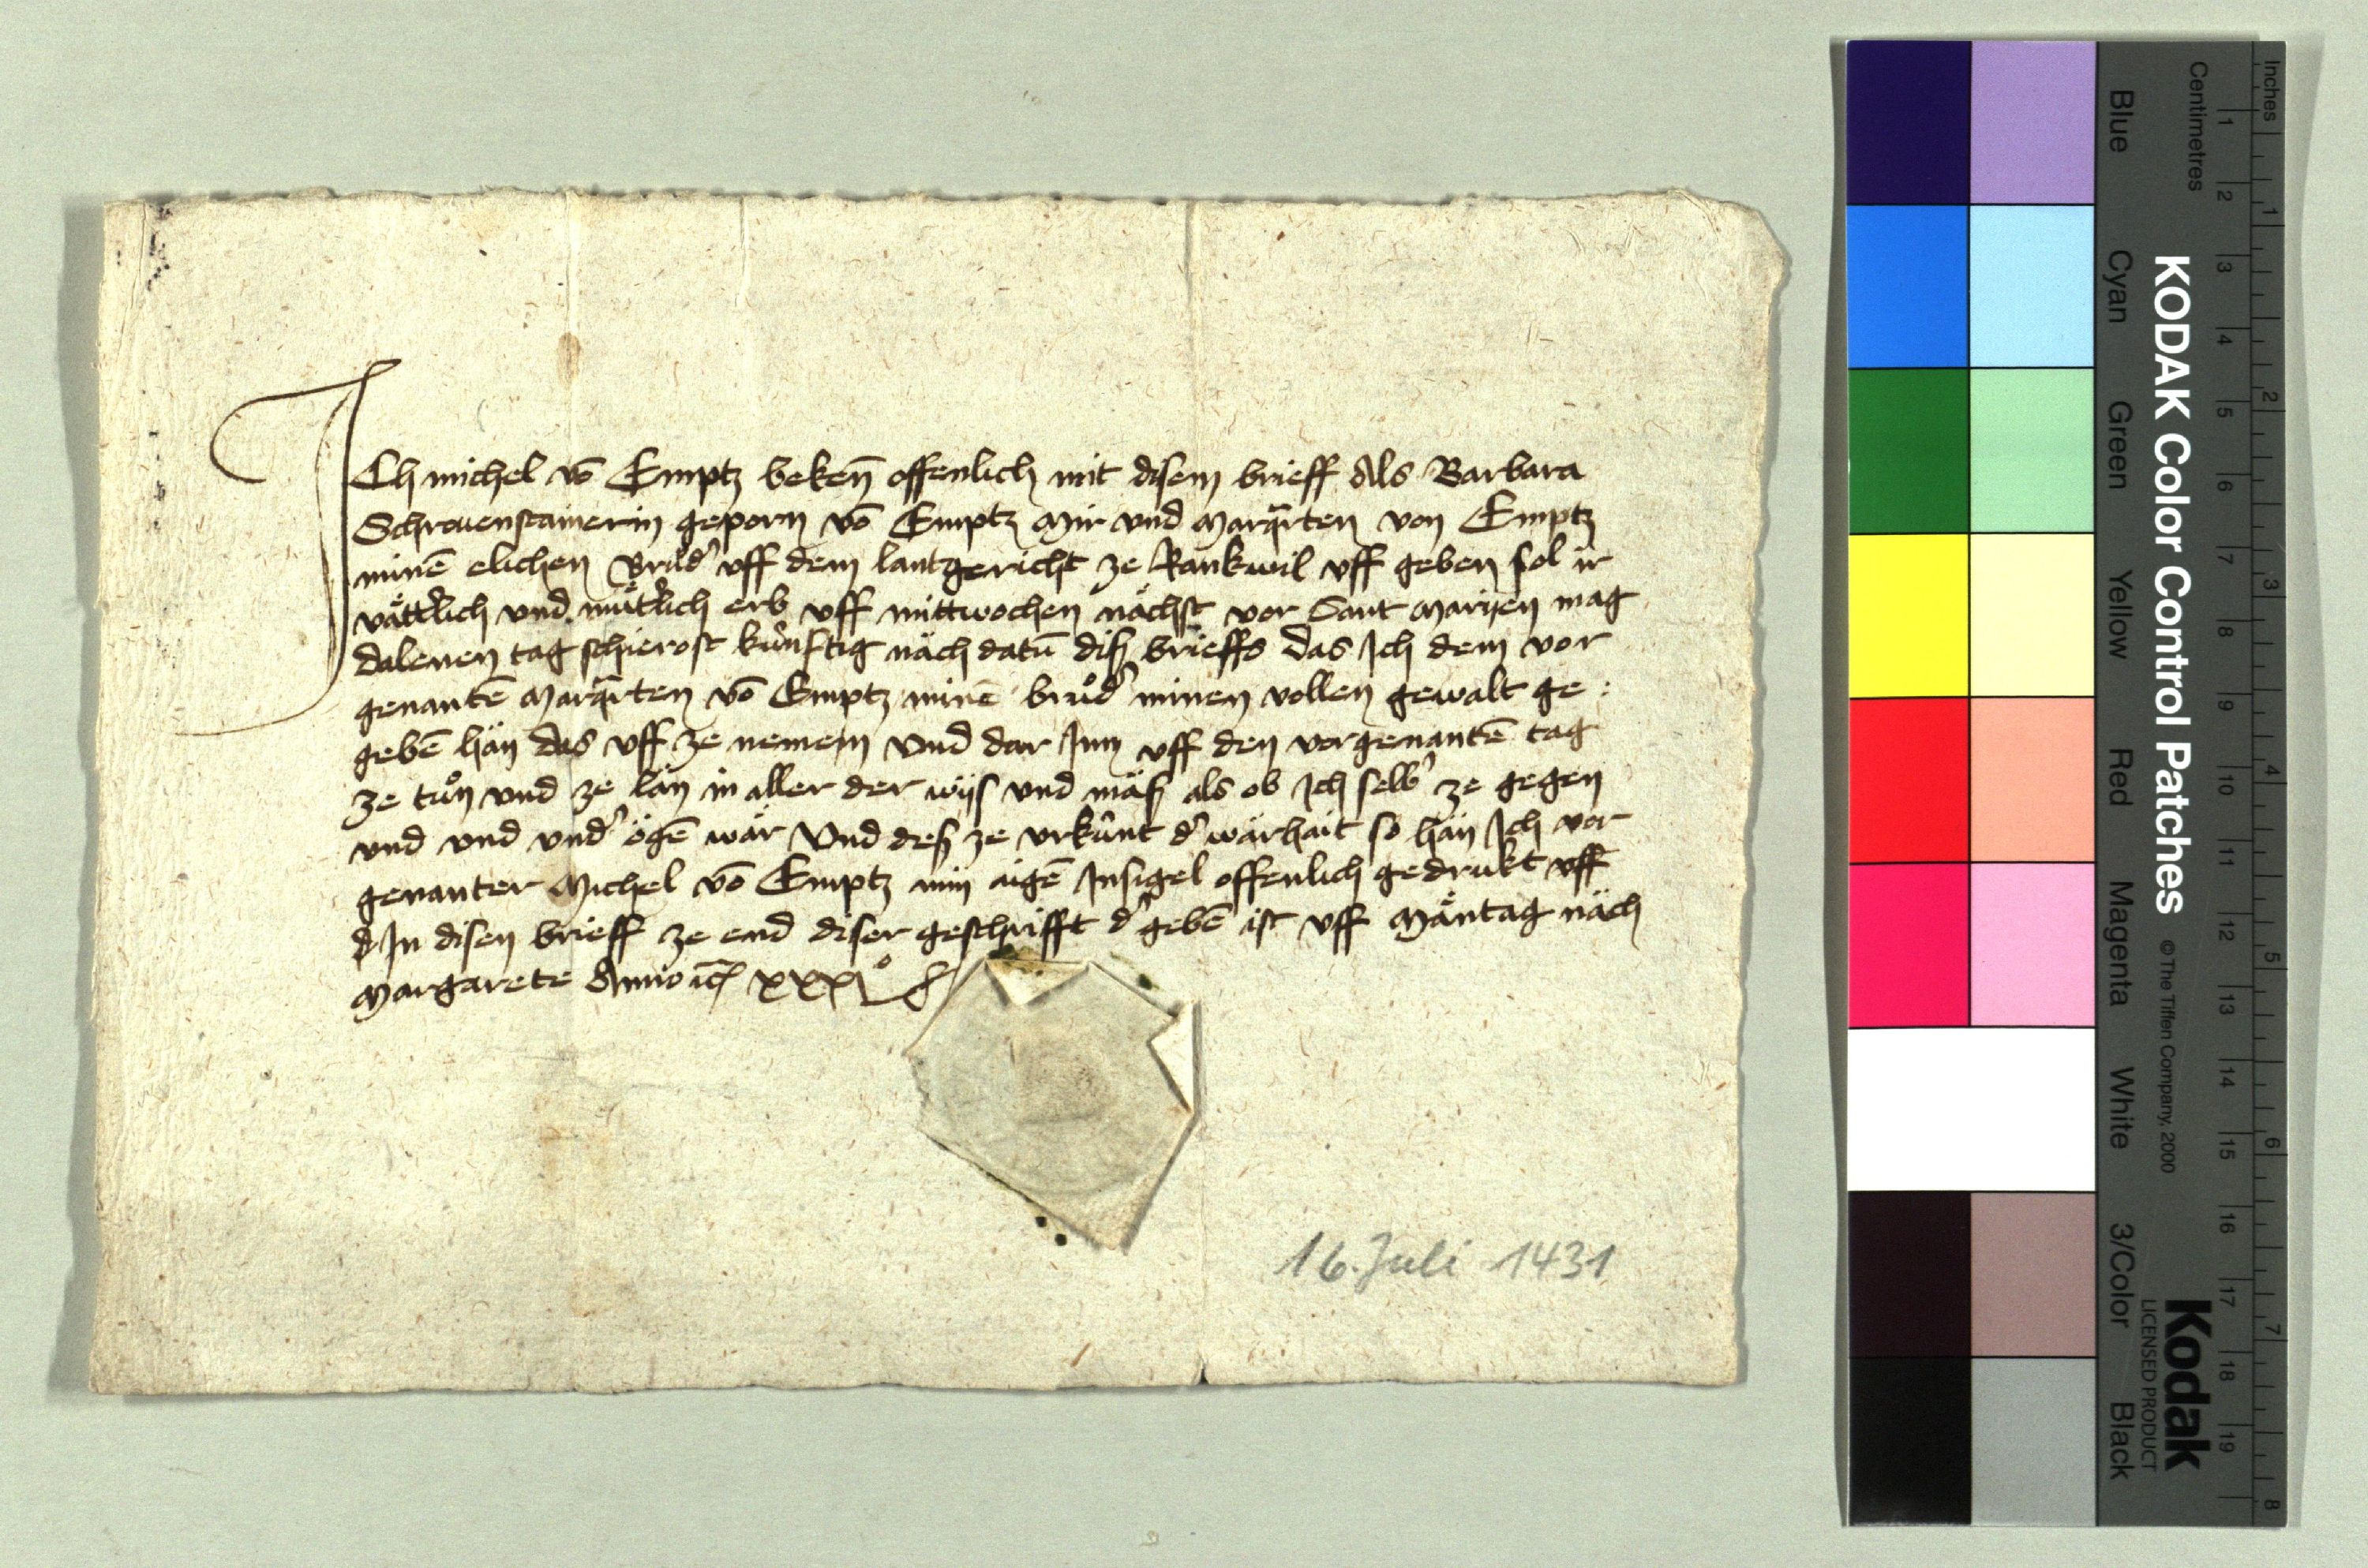 ICh michel vō Emptz bekeñ offenlich mit disem brieff Als Barbara
Schrouenstainerin geporn vō Emptz Mir vnd Marqwrten von Emptz
minē elichen Brůd' vff dem lantzgericht ze Rankwil vff geben sol ir
våtterlich vnd můtterlich erb vff mittwochen nächst vor Sant Marijen mag
dalenen tag schierost kůnftig näch datū diß brieffs Das Ich dem vor
genantē Marqwrten vō Emptz minē brůd' minen vollen gewalt ge :
gebē hän das vff ze nemem Vnd dar Inn vff den vorgenantē tag
ze tůn vnd ze län in aller der wijs vnd mäß als ob Ich selb' ze gegen
vnd vnd vnd' ögē wär Vnd deß ze vrkůnt d' wärhait so hän Ich vor
genanter Michel vō Emptz min aigē Insigel offenlich gedrukt vff
In disen brieff ze end diser geschrifft d' gebē ist vff Måntag näch
Margarete Anno xxxj°
16. Juli 1431
Inches
Centimetres
1 2 3 4 5 6 7 8 9 10 11 12 13 14 15 16 17 18 19
1 2 3 4 5 6 7 8
Blue Cyan Green Yellow Red Magenta White 3/Color Black
KODAK Color Control Patches © The Tiffen Company, 2000
Kodak
LICENSED PRODUCT